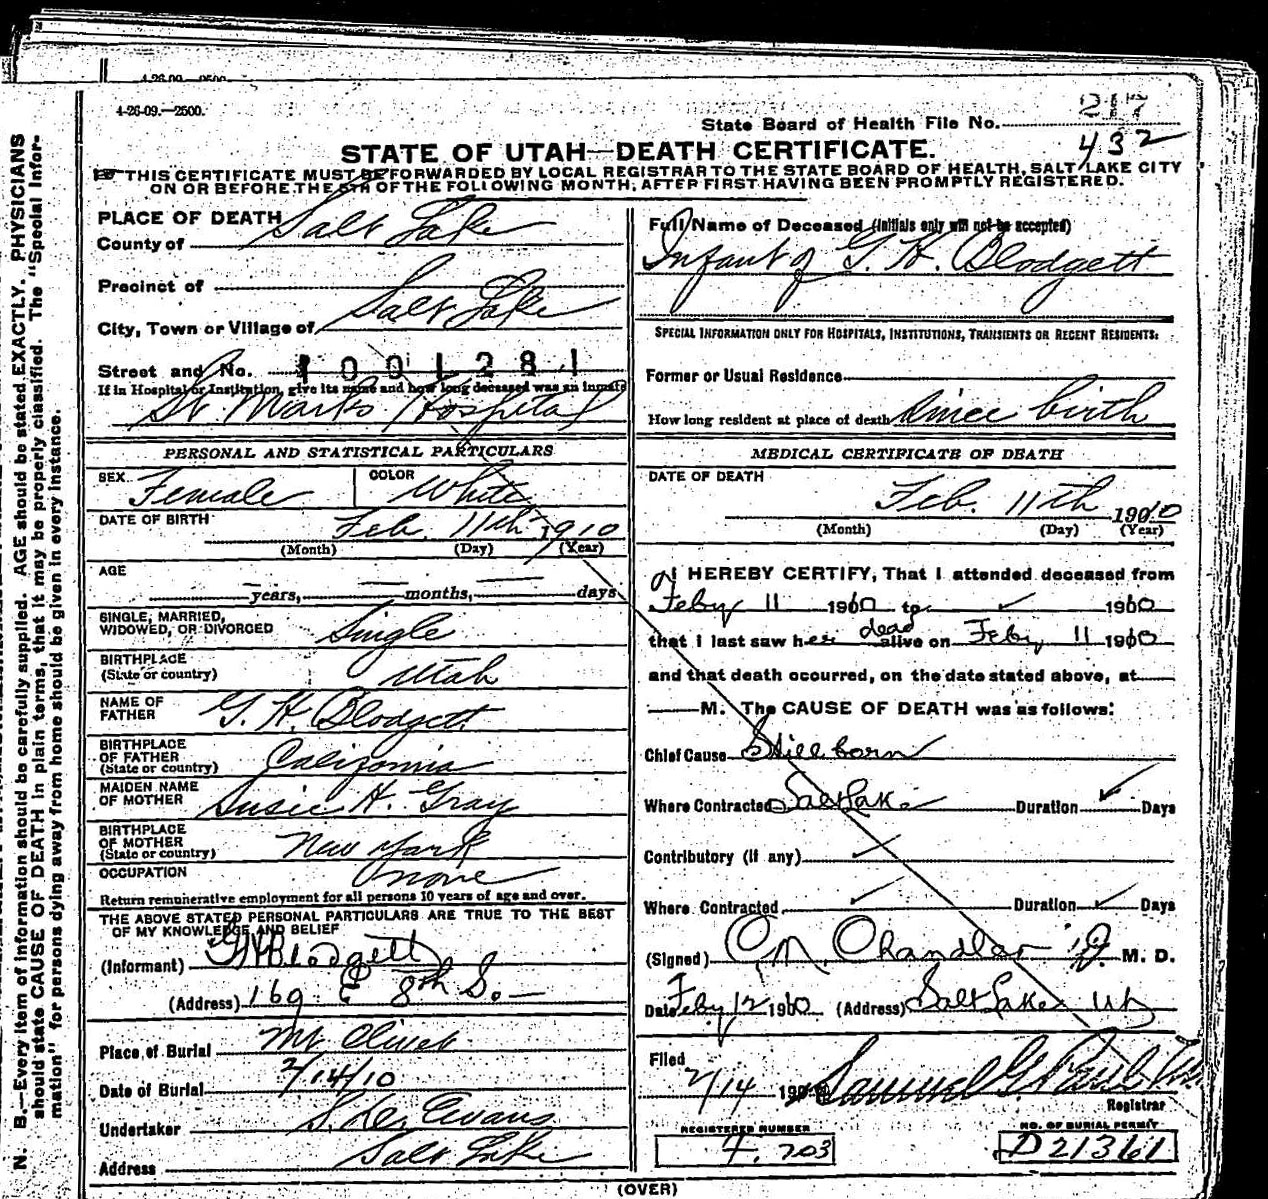 4-26-09.—2500.
4-26-09.—2500.
217
State Board of Health File No.
432
STATE OF UTAH—DEATH CERTIFICATE.
THIS CERTIFICATE MUST BE FORWARDED BY LOCAL REGISTRAR TO THE STATE BOARD OF HEALTH, SALT LAKE CITY
ON OR BEFORE THE 5TH OF THE FOLLOWING MONTH, AFTER FIRST HAVING BEEN PROMPTLY REGISTERED.
PLACE OF DEATH
County of Salt Lake
Precinct of
City, Town or Village of Salt Lake
Street and No. 1001281
If in Hospital or Institution, give its name and how long deceased was an inmate
St. Marks Hospital
PERSONAL AND STATISTICAL PARTICULARS
SEX Female COLOR White
DATE OF BIRTH Feb. 11th 1910
(Month) (Day) (Year)
AGE
— years, — months, — days
SINGLE, MARRIED,
WIDOWED, OR DIVORCED Single
BIRTHPLACE
(State or country) Utah
NAME OF
FATHER G. H. Blodgett
BIRTHPLACE
OF FATHER
(State or country) California
MAIDEN NAME
OF MOTHER Susie H. Gray
BIRTHPLACE
OF MOTHER
(State or country) New York
OCCUPATION none
Return remunerative employment for all persons 10 years of age and over.
THE ABOVE STATED PERSONAL PARTICULARS ARE TRUE TO THE BEST
OF MY KNOWLEDGE AND BELIEF
(Informant) G H Blodgett
(Address) 169 E 8th So.
Place of Burial Mt Olivet
Date of Burial 2/14/10
Undertaker Evans
Address Salt Lake
Full Name of Deceased (Initials only will not be accepted)
Infant of G. H. Blodgett
SPECIAL INFORMATION ONLY FOR HOSPITALS, INSTITUTIONS, TRANSIENTS OR RECENT RESIDENTS:
Former or Usual Residence
How long resident at place of death since birth
MEDICAL CERTIFICATE OF DEATH
DATE OF DEATH
Feb. 11th 1910
(Month) (Day) (Year)
I HEREBY CERTIFY, That I attended deceased from
Feby 11 1910 to ✓ 1910
that I last saw her dead alive on Feby 11 1910
and that death occurred, on the date stated above, at
M. The CAUSE OF DEATH was as follows:
Chief Cause Stillborn
Where Contracted Salt Lake Duration ✓ Days
Contributory (if any) ✓
Where Contracted ✓ Duration ✓ Days
(Signed) Chandler M. D.
Date Feby 12 1910 (Address) Salt Lake Ut
Filed 2/14 190 Samuel G. Paul
Registrar
REGISTERED NUMBER NO. OF BURIAL PERMIT
F. 203 D 21361
(OVER)
N. B.—Every item of information should be carefully supplied. AGE should be stated EXACTLY. PHYSICIANS
should state CAUSE OF DEATH in plain terms, that it may be properly classified. The "Special Infor-
mation" for persons dying away from home should be given in every instance.